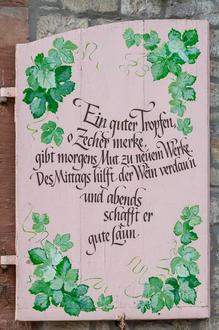 Ein guter Tropfen,
o Zecher merke,
gibt morgens Mut zu neuem Werke.
Des Mittags hilft der Wein verdau'n
und abends
schafft er
gute Laun